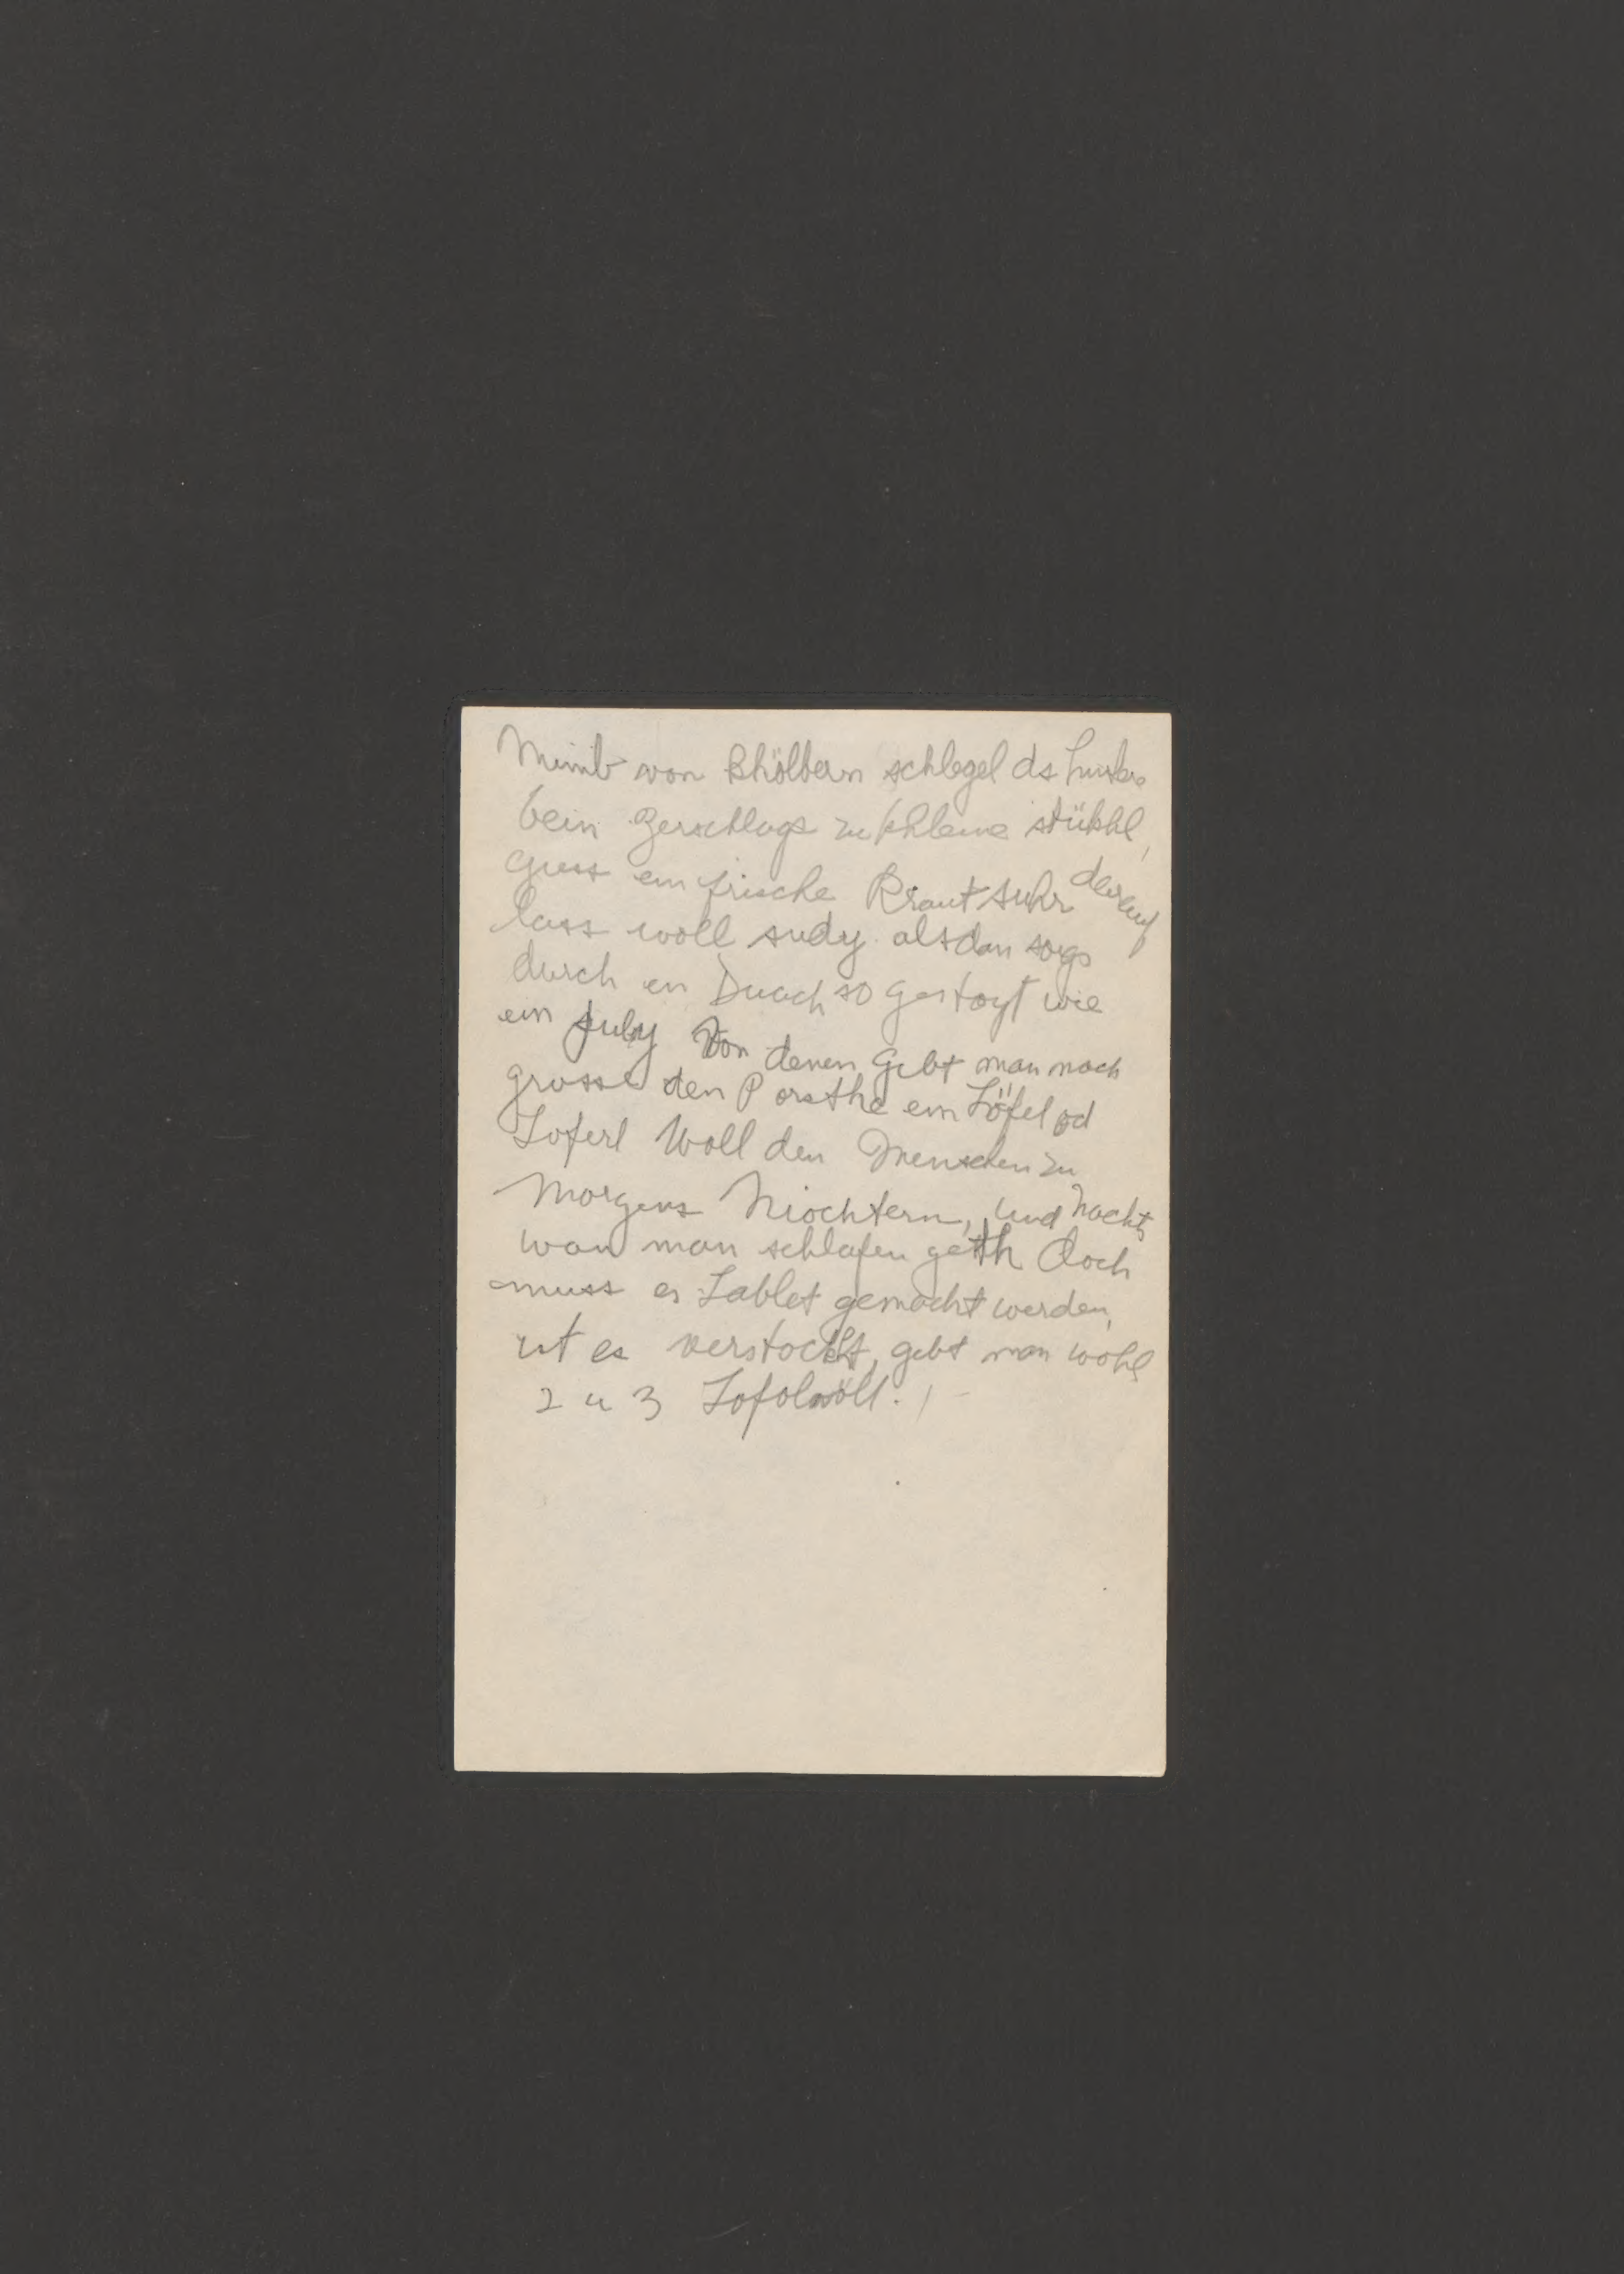 Nimb von Khölbern schlegel ds hinter
bein Zerschlags zu khleine stükhl,
giess ein frische Kraut suhr derauf
lass woll sudy alsdan
durch en Duach so gestoyt wie
ein suly Von denen gibt man nach
grosse den P orsthe ein Löfel od
Loferl Woll den Menschen zu
Morgens Niochtern, und Nachts
wan man schlafen geth doch
muss es Lablet gemacht werden,
ist es verstockt, gibt man wohl
2 u 3 Lofolvöll.